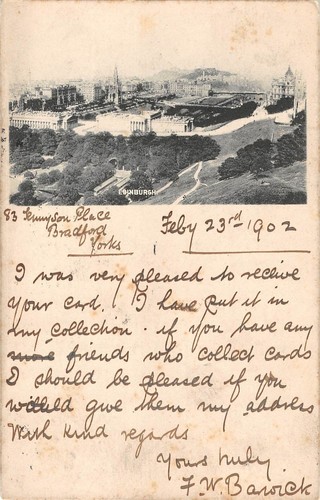 EDINBURGH
83 Tennyson Place
Bradford
Yorks
Feby 23rd 1902
I was very pleased to receive
your card. I have put it in
my collection. if you have any
more friends who collect cards
I should be pleased if you
would give them my address
With kind regards
Yours truly
F. W. Barwick